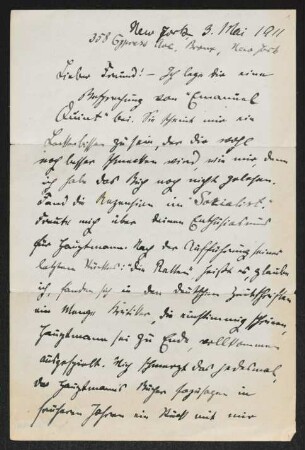 New York, 3. Mai 1911
358 Cypress Ave., Bronx, New York
Lieber Freund! – Ich lege dir eine
Besprechung von "Emanuel
Quint" bei. Sie scheint mir ein
Leckerbissen zu sein, der dir wohl
noch besser schmecken wird, wie mir, denn
ich habe das Buch noch nicht gelesen.
Fand die Rezension im "Sozialist".
Freute mich über deinen Enthusiasmus
für Hauptmann. Nach der Aufführung seines
letzten Stückes: "Die Ratten" heißt es, glaube
ich, fanden sich in den deutschen Zeitschriften
ein Menge Kritiker, die einstimmig schrieen,
Hauptmann sei zu Ende, vollkommen
ausgespielt. Mich schmerzt das jedesmal,
da Hauptmanns Bücher sozusagen in
früheren Jahren ein Stück mit mir